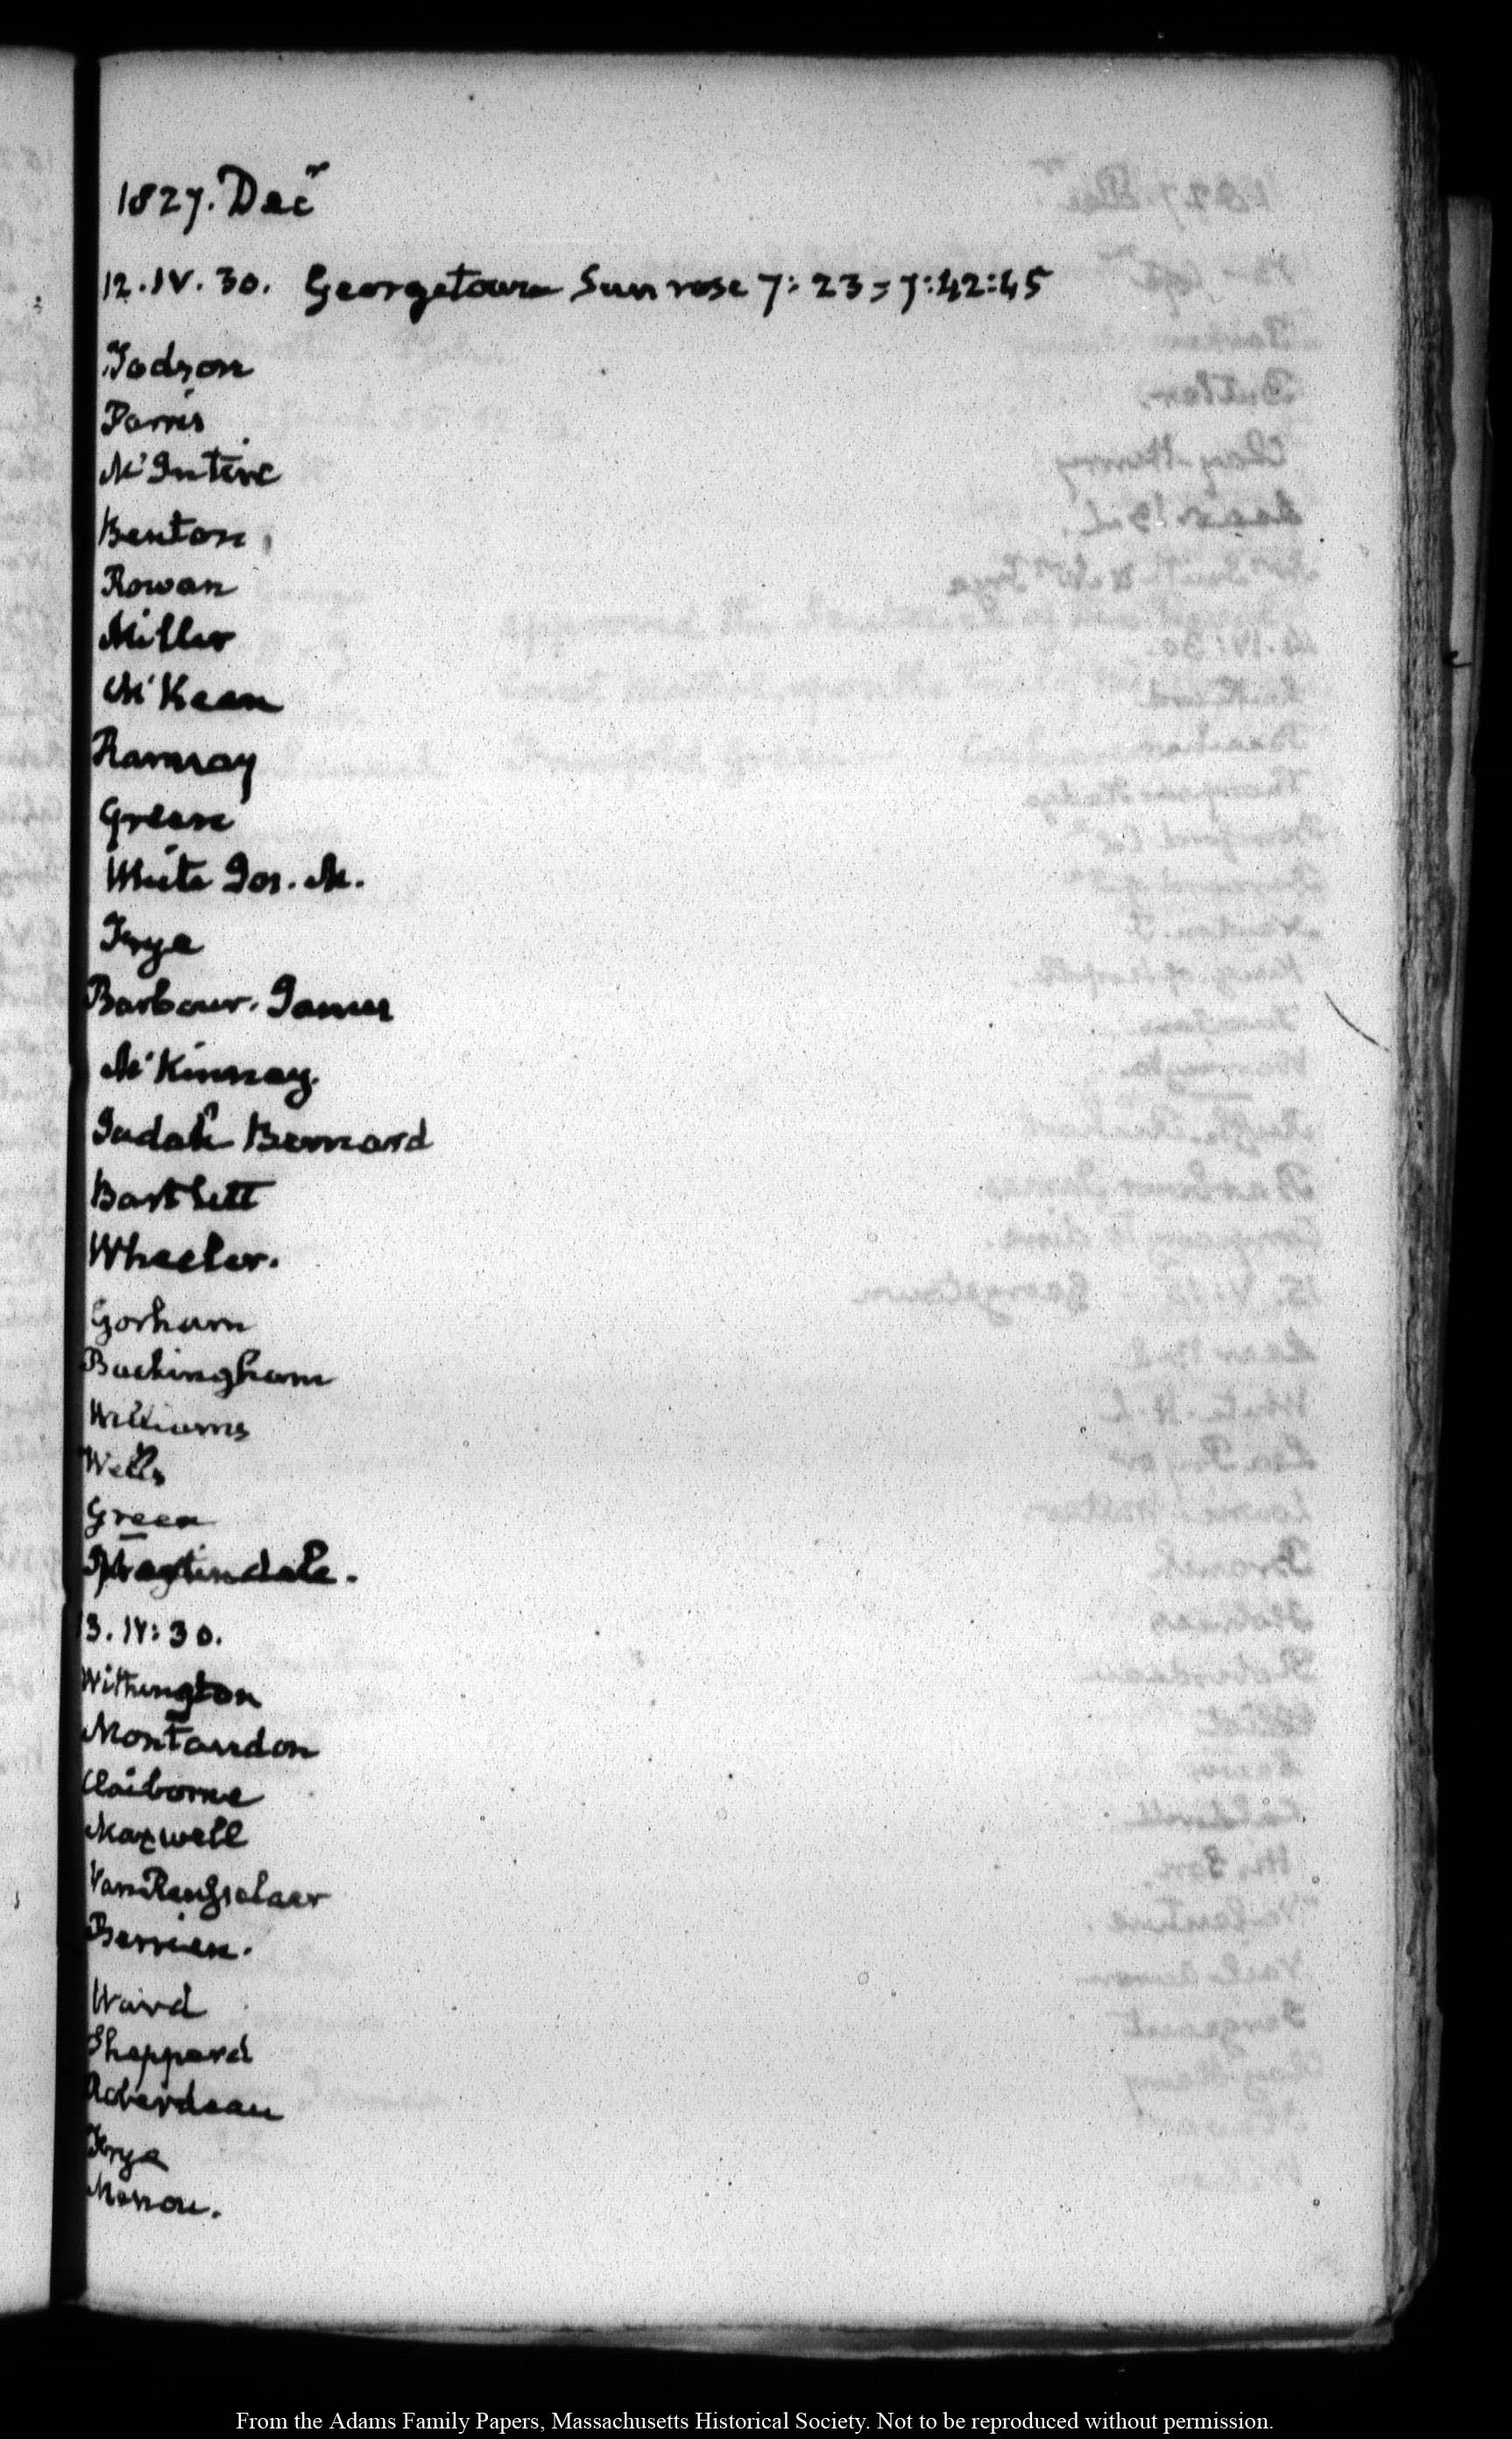 1827. Decr
12. IV. 30. Georgetown Sun rose 7: 23 = 7:42:45
Dodson
Parris
Mc'Intire
Benton
Rowan
Miller
Mc'Kean
Ramsay
Greene
White Jos. M.
Frye
Barbour. James
Mc'Kinney.
Judah Bernard
Bartlett
Wheeler.
Gorham
Buckingham
Williams
Wells
Green
Martindale.
13. IV: 30.
Withington
Montandon
Claiborne
Maxwell
Van Rensselaer
Berrien.
Ward
Sheppard
Roberdeau
Frye
From the Adams Family Papers, Massachusetts Historical Society. Not to be reproduced without permission.